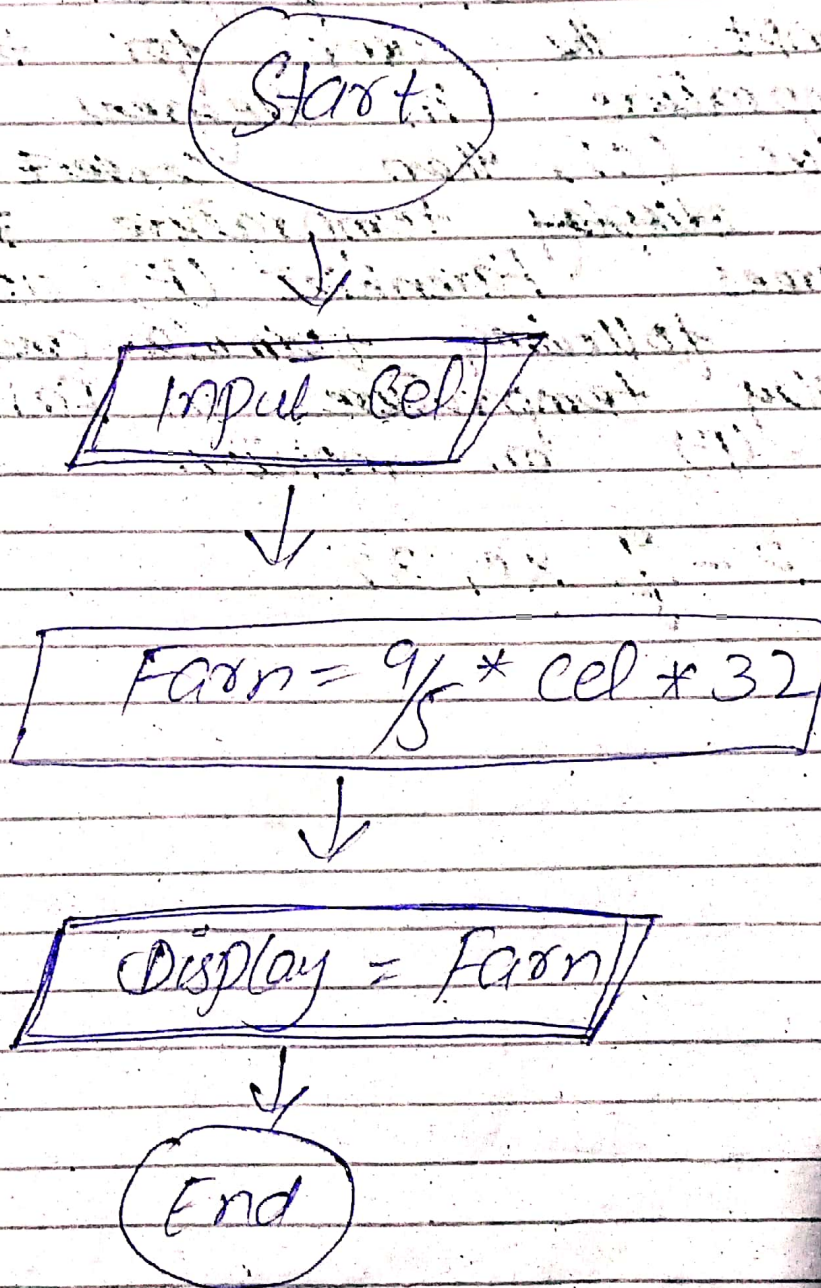 Start
Input Cel
Farn = 9/5 * Cel * 32
Display = Farn
End